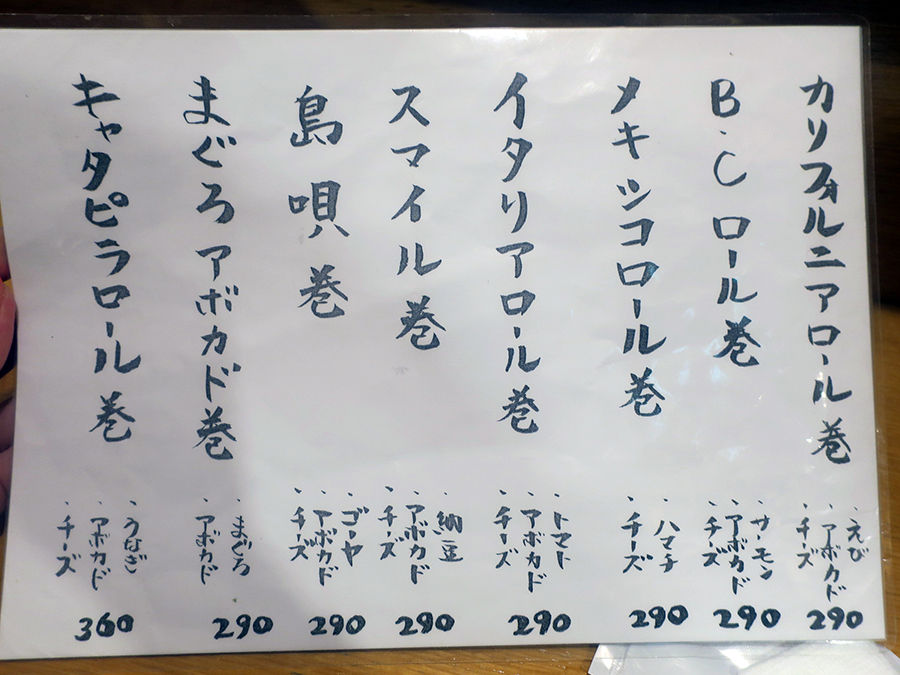 カリフォルニアロール巻
・えび
・アボカド
・チーズ
290
B.Cロール巻
・サーモン
・アボカド
・チーズ
290
メキシコロール巻
・ハマチ
・チーズ
290
イタリアロール巻
・トマト
・アボカド
・チーズ
290
スマイル巻
・納豆
・アボカド
・チーズ
290
島唄巻
・ゴーヤ
・アボカド
・チーズ
290
まぐろアボカド巻
・まぐろ
・アボカド
290
キャタピラロール巻
・うなぎ
・アボカド
・チーズ
360